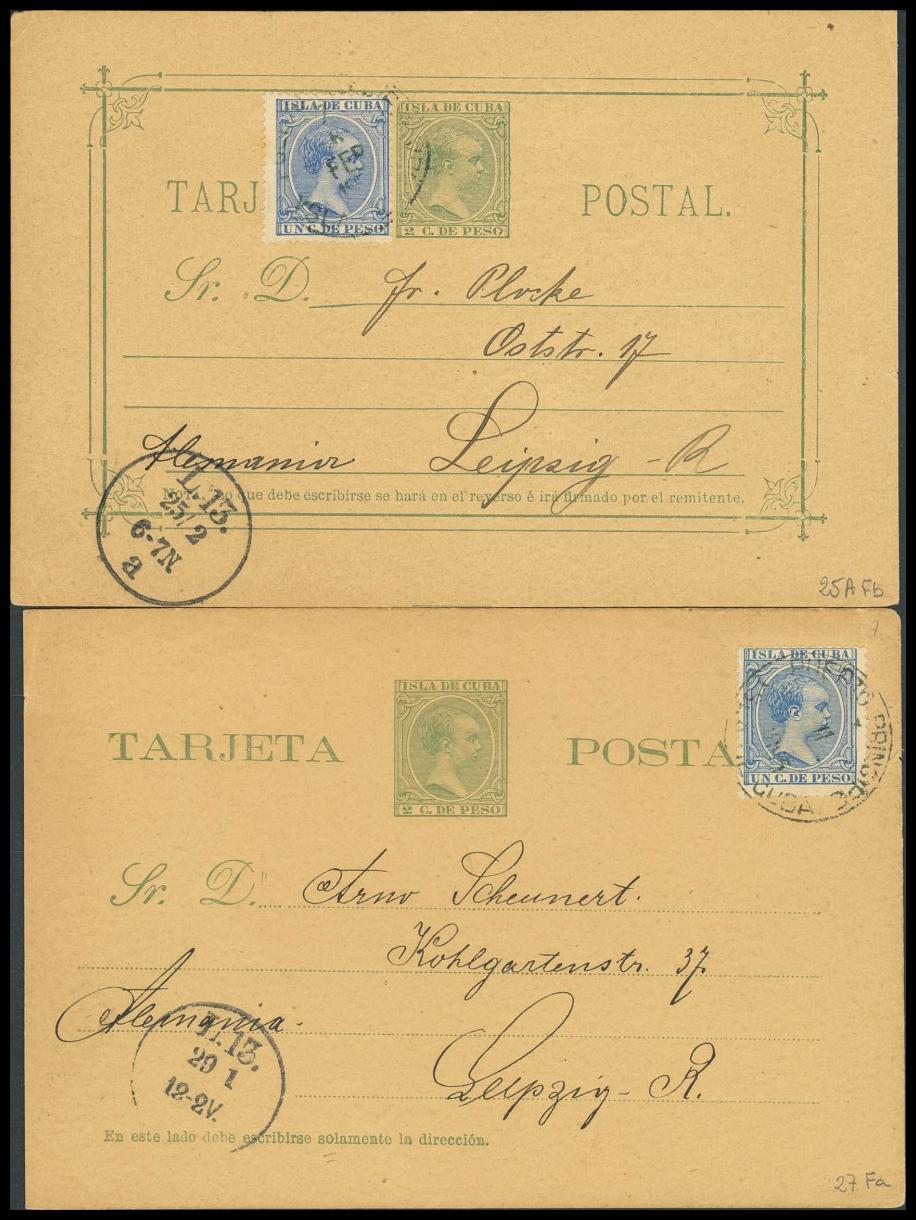 ISLA DE CUBA ISLA DE CUBA
FEB
TARJ POSTAL.
UN C. DE PESO 2 C. DE PESO
Sr. D. Fr. Plocke
Oststr. 17
Alemania Leipzig - R
NOTA. Lo que debe escribirse se hará en el reverso é irá firmado por el remitente.
L. 13.
25/2
6-7N
a
25A Fb
7.
ISLA DE CUBA
PUERTO PRINCIPE
11
CUBA
UN C. DE PESO
ISLA DE CUBA
TARJETA POSTA
2 C. DE PESO
Sr. D. Arno Scheunert.
Kohlgartenstr. 37
Alemania.
Leipzig - R.
L. 13.
29 1
12-2V.
En este lado debe escribirse solamente la dirección.
27 Fa